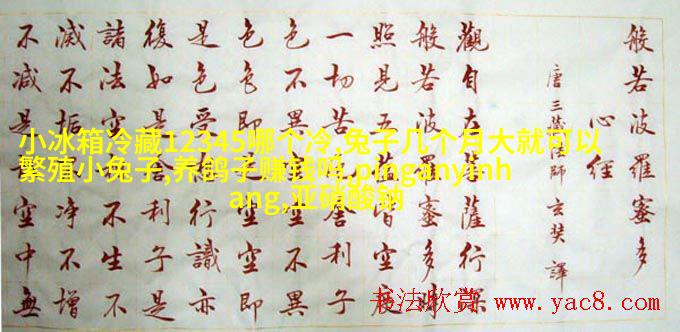 般若波羅蜜多
心經
唐三藏法師玄奘譯
觀自在菩薩行深
般若波羅蜜多時
照見五蘊皆空度
一切苦厄舍利子
色不異空空不異
色色即是空空即
是色受想行識亦
復如是舍利子是
諸法空相不生不
滅不垢不淨不增
不減是故空中無
小冰箱冷藏12345哪个冷,兔子几个月大就可以
繁殖小兔子,养鸽子赚钱吗,pinganyinh
ang,亚硝酸钠
书法欣赏 www.yac8.com